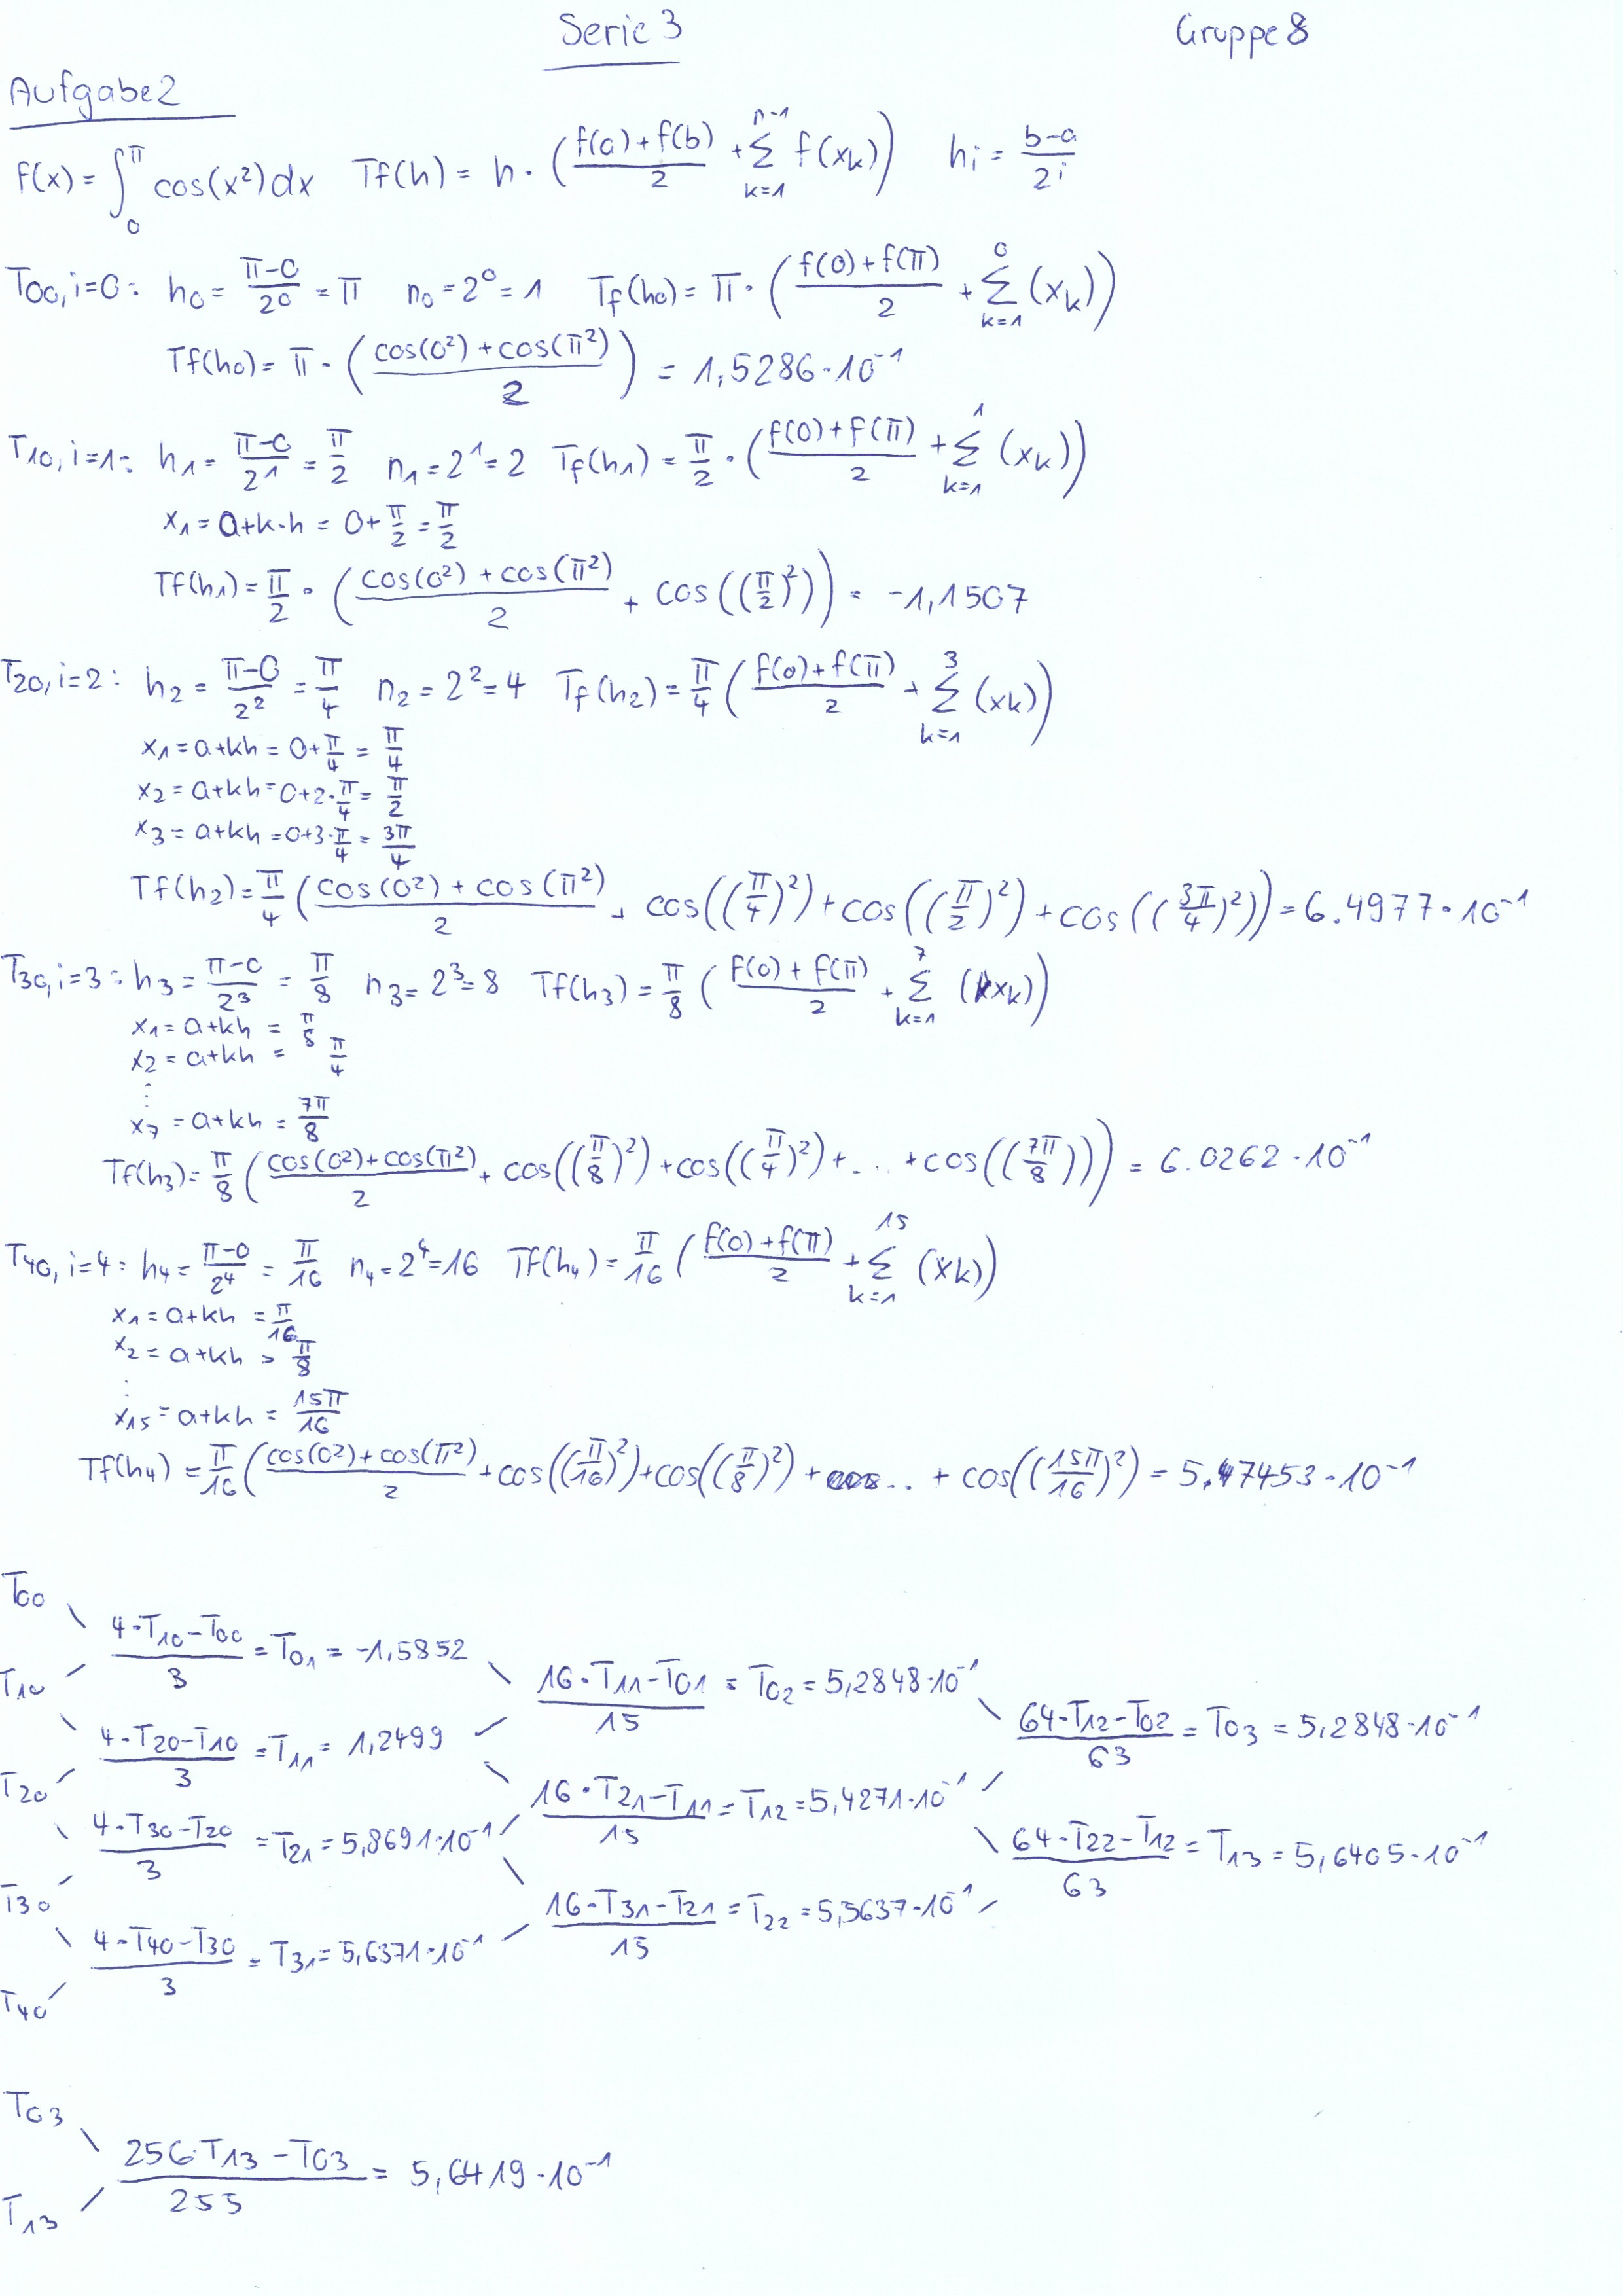 Serie 3 Gruppe 8
Aufgabe 2
f(x) = ∫_0^π cos(x²)dx Tf(h) = h · ( (f(a)+f(b))/2 + Σ_{k=1}^{n-1} f(x_k) ) h_i = (b-a)/2^i
T_00, i=0: h_0 = (π-0)/2^0 = π n_0 = 2^0 = 1 Tf(h_0) = π · ( (f(0)+f(π))/2 + Σ_{k=1}^{0} (x_k) )
Tf(h_0) = π · ( (cos(0²)+cos(π²))/2 ) = 1,5286·10^-1
T_10, i=1: h_1 = (π-0)/2^1 = π/2 n_1 = 2^1 = 2 Tf(h_1) = π/2 · ( (f(0)+f(π))/2 + Σ_{k=1}^{1} (x_k) )
x_1 = a+k·h = 0+π/2 = π/2
Tf(h_1) = π/2 · ( (cos(0²)+cos(π²))/2 + cos((π/2)²) ) = -1,1507
T_20, i=2: h_2 = (π-0)/2² = π/4 n_2 = 2² = 4 Tf(h_2) = π/4 ( (f(0)+f(π))/2 + Σ_{k=1}^{3} (x_k) )
x_1 = a+kh = 0+π/4 = π/4
x_2 = a+kh = 0+2·π/4 = π/2
x_3 = a+kh = 0+3·π/4 = 3π/4
Tf(h_2) = π/4 ( (cos(0²)+cos(π²))/2 + cos((π/4)²) + cos((π/2)²) + cos((3π/4)²) ) = 6.4977·10^-1
T_30, i=3: h_3 = (π-0)/2³ = π/8 n_3 = 2³ = 8 Tf(h_3) = π/8 ( (f(0)+f(π))/2 + Σ_{k=1}^{7} (x_k) )
x_1 = a+kh = π/8
x_2 = a+kh = π/4
⋮
x_7 = a+kh = 7π/8
Tf(h_3) = π/8 ( (cos(0²)+cos(π²))/2 + cos((π/8)²) + cos((π/4)²) + ... + cos((7π/8)) ) = 6.0262·10^-1
T_40, i=4: h_4 = (π-0)/2^4 = π/16 n_4 = 2^4 = 16 Tf(h_4) = π/16 ( (f(0)+f(π))/2 + Σ_{k=1}^{15} (x_k) )
x_1 = a+kh = π/16
x_2 = a+kh = π/8
⋮
x_15 = a+kh = 15π/16
Tf(h_4) = π/16 ( (cos(0²)+cos(π²))/2 + cos((π/16)²) + cos((π/8)²) + ... + cos((15π/16)²) = 5,7453·10^-1
T_00
(4·T_10-T_00)/3 = T_01 = -1,5852
T_10
(16·T_11-T_01)/15 = T_02 = 5,2848·10^-1
(4·T_20-T_10)/3 = T_11 = 1,2499
(64·T_12-T_02)/63 = T_03 = 5,2848·10^-1
T_20
(16·T_21-T_11)/15 = T_12 = 5,4271·10^-1
(4·T_30-T_20)/3 = T_21 = 5,8691·10^-1
(64·T_22-T_12)/63 = T_13 = 5,6405·10^-1
T_30
(16·T_31-T_21)/15 = T_22 = 5,5637·10^-1
(4·T_40-T_30)/3 = T_31 = 5,6371·10^-1
T_40
T_03
(256·T_13-T_03)/255 = 5,6419·10^-1
T_13